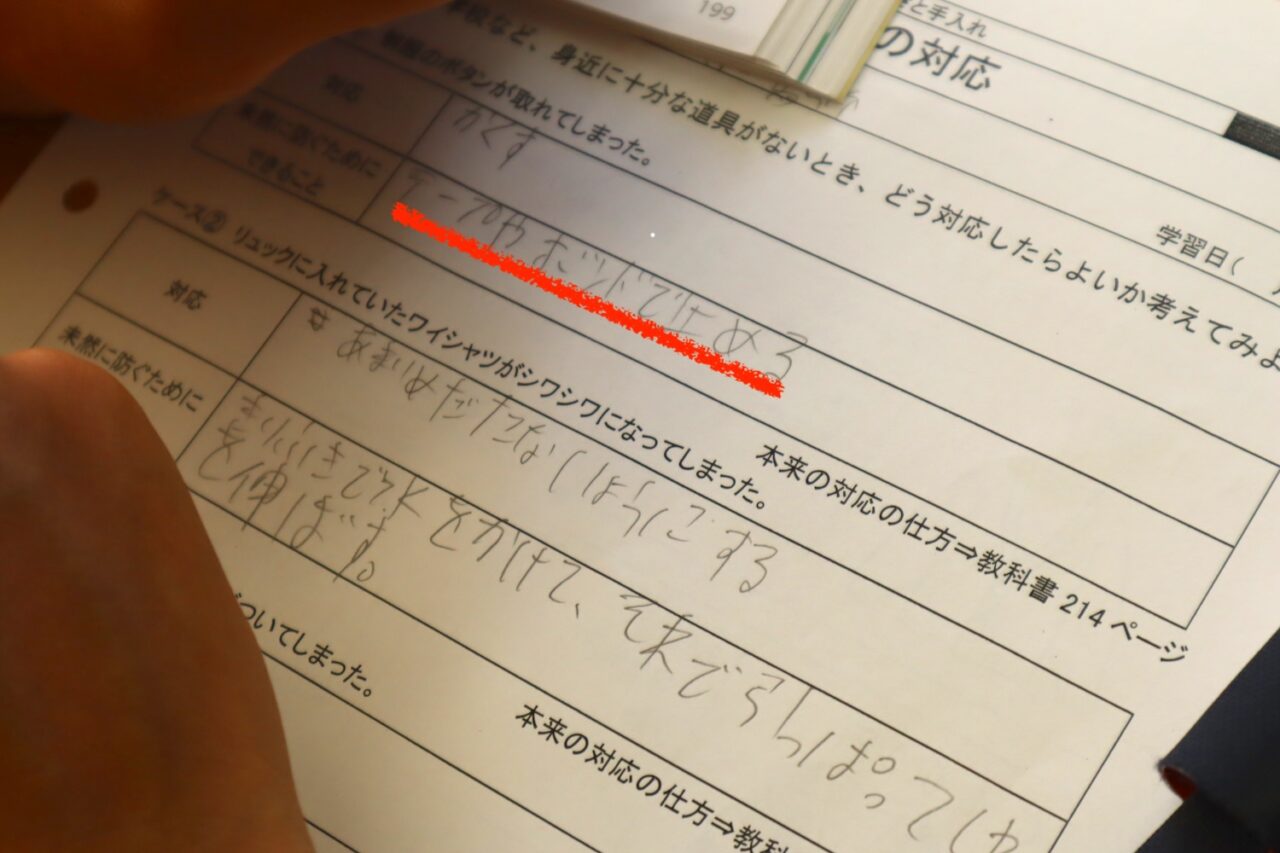 199
と手入れ
の対応
学習日(
学校など、身近に十分な道具がないとき、どう対応したらよいか考えてみよ
のボタンが取れてしまった。
対応
かくす
未然に防ぐために
できること
テープやボンドで止める
本来の対応の仕方⇒教科書 214 ページ
ケース② リュックに入れていたワイシャツがシワシワになってしまった。
対応
あまりめだたないようにする
未然に防ぐために
きりふきで水をかけて、それでらんぱってしわ
を伸ばす。
本来の対応の仕方⇒教科
ついてしまった。